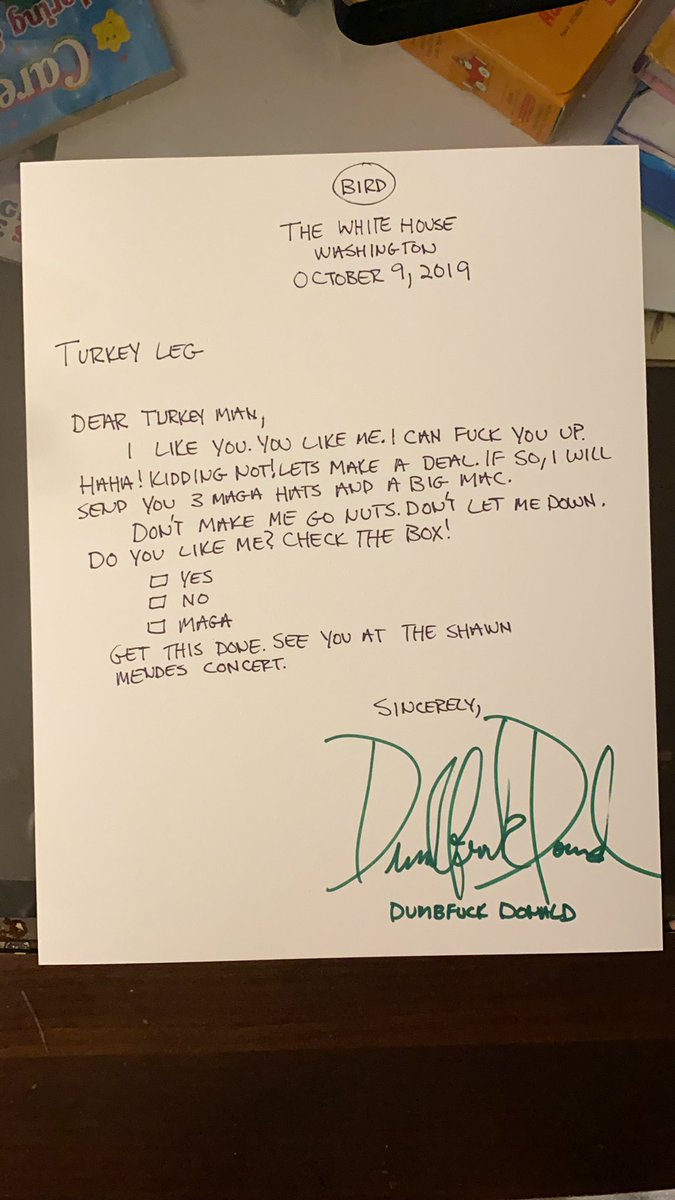 Care
BIRD
THE WHITE HOUSE
WASHINGTON
OCTOBER 9, 2019
TURKEY LEG
DEAR TURKEY MAN,
I LIKE YOU. YOU LIKE ME. I CAN FUCK YOU UP.
HAHA! KIDDING NOT! LETS MAKE A DEAL. IF SO, I WILL
SEND YOU 3 MAGA HATS AND A BIG MAC.
DON'T MAKE ME GO NUTS. DON'T LET ME DOWN.
DO YOU LIKE ME? CHECK THE BOX!
YES
NO
MAGA
GET THIS DONE. SEE YOU AT THE SHAWN
MENDES CONCERT.
SINCERELY,
Dumbfuck Donald
DUMBFUCK DONALD